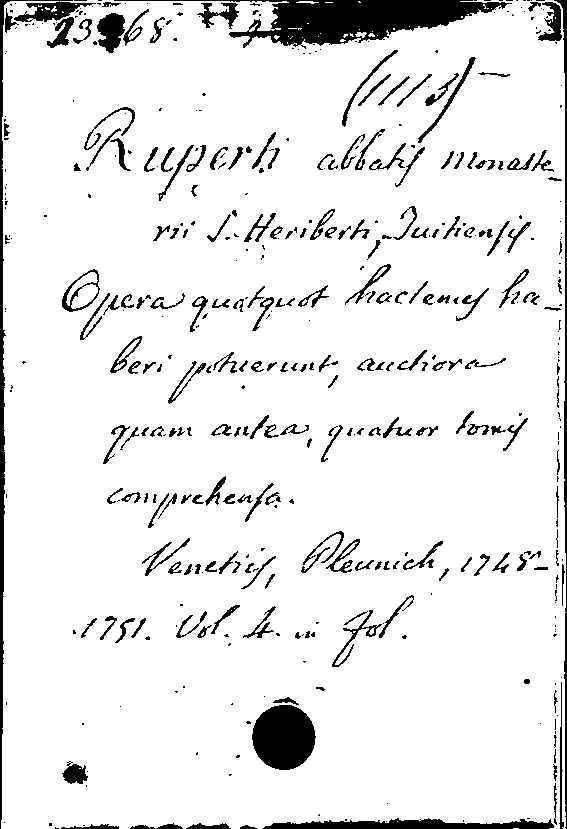 (1113)
Ruperti abbatis monaste-
rii S. Heriberti, Tuitiensis.
Opera quotquot hactenus ha-
beri potuerunt, auctiora
quam antea, quatuor tomis
comprehensa.
Venetiis, Pleunich, 1748-
1751. Vol. 4. in fol.